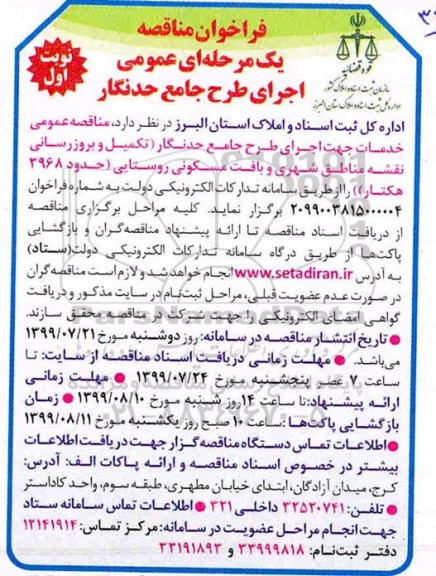 ۳۰
فراخوان مناقصه
یک مرحله‌ای عمومی
اجرای طرح جامع حدنگار
نوبت
اول
قوه قضائیه
سازمان ثبت اسناد و املاک کشور
اداره کل ثبت اسناد و املاک استان البرز
اداره کل ثبت اسناد و املاک استان البرز در نظر دارد، مناقصه عمومی
خدمات جهت اجرای طرح جامع حدنگار (تکمیل و بروزرسانی
نقشه مناطق شهری و بافت مسکونی روستایی (حدود ۳۹۶۸
هکتار)) را از طریق سامانه تدارکات الکترونیکی دولت به شماره فراخوان
۲۰۹۹۰۰۳۸۱۵۰۰۰۰۰۴ برگزار نماید. کلیه مراحل برگزاری مناقصه
از دریافت اسناد مناقصه تا ارائه پیشنهاد مناقصه‌گران و بازگشایی
پاکت‌ها از طریق درگاه سامانه تدارکات الکترونیکی دولت (ستاد)
به آدرس www.setadiran.ir انجام خواهد شد و لازم است مناقصه گران
در صورت عدم عضویت قبلی، مراحل ثبت‌نام در سایت مذکور و دریافت
گواهی امضای الکترونیکی را جهت شرکت در مناقصه محقق سازند.
● تاریخ انتشار مناقصه در سامانه: روز دوشنبه مورخ ۱۳۹۹/۰۷/۲۱
می‌باشد. ● مهلت زمانی دریافت اسناد مناقصه از سایت: تا
ساعت ۷ عصر پنجشنبه مورخ ۱۳۹۹/۰۷/۲۴ ● مهلت زمانی
ارائه پیشنهاد: تا ساعت ۱۴ روز شنبه مورخ ۱۳۹۹/۰۸/۱۰ ● زمان
بازگشایی پاکت‌ها: ساعت ۱۰ صبح روز یکشنبه مورخ ۱۳۹۹/۰۸/۱۱
● اطلاعات تماس دستگاه مناقصه گزار جهت دریافت اطلاعات
بیشتر در خصوص اسناد مناقصه و ارائه پاکات الف: آدرس:
کرج، میدان آزادگان، ابتدای خیابان مطهری، طبقه سوم، واحد کاداستر
● تلفن: ۳۲۵۳۰۷۴۱ داخلی ۳۲۱ ● اطلاعات تماس سامانه ستاد
جهت انجام مراحل عضویت در سامانه: مرکز تماس: ۱۲۱۴۱۹۱۴
دفتر ثبت‌نام: ۳۳۹۹۹۸۱۸ و ۳۳۱۹۱۸۹۳